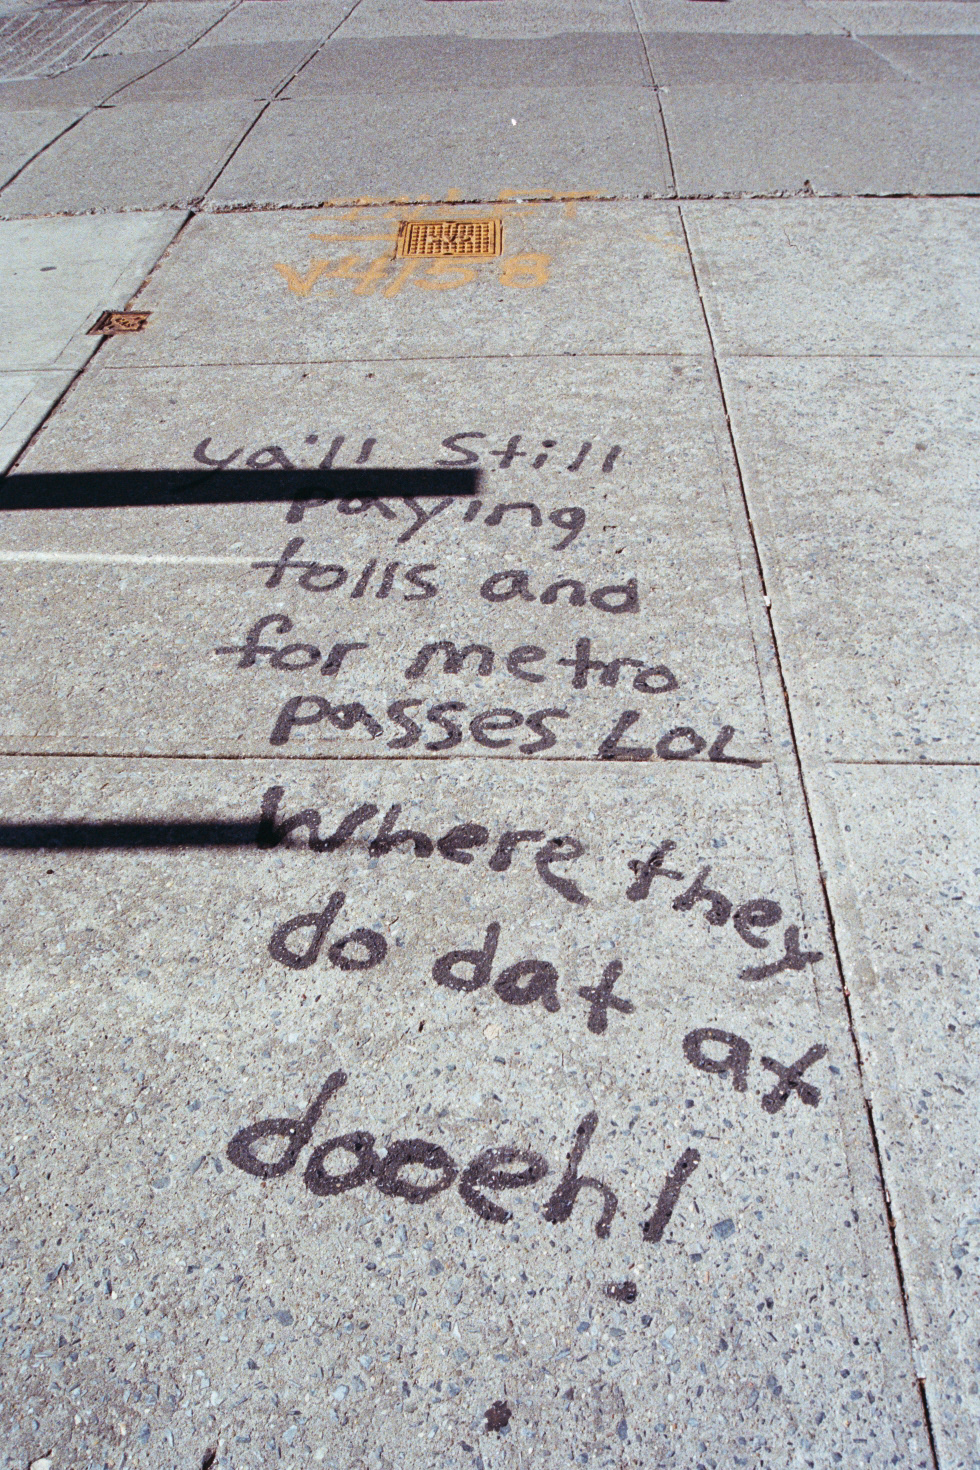 V4158
ya'll Still
Paying
tolls and
for metro
passes LOL
Where they
do dat at
dooeh!